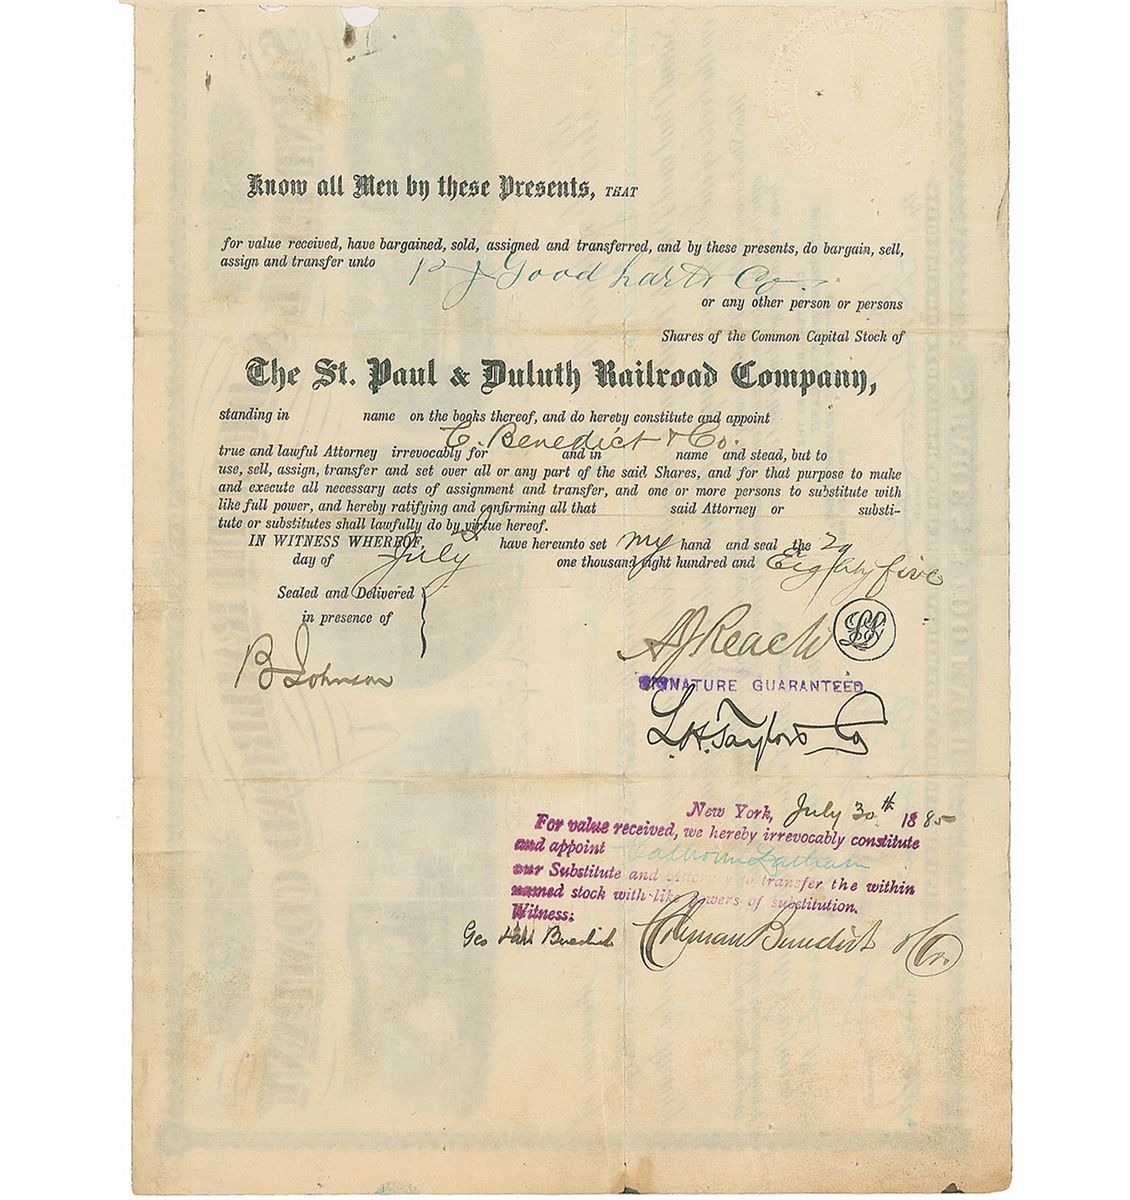 Know all Men by these Presents, THAT
for value received, have bargained, sold, assigned and transferred, and by these presents, do bargain, sell,
assign and transfer unto P J Goodhart & Co.
or any other person or persons
Shares of the Common Capital Stock of
The St. Paul & Duluth Railroad Company,
standing in name on the books thereof, and do hereby constitute and appoint
C. Benedict & Co.
true and lawful Attorney irrevocably for and in name and stead, but to
use, sell, assign, transfer and set over all or any part of the said Shares, and for that purpose to make
and execute all necessary acts of assignment and transfer, and one or more persons to substitute with
like full power, and hereby ratifying and confirming all that said Attorney or substi-
tute or substitutes shall lawfully do by virtue hereof.
IN WITNESS WHEREOF, I have hereunto set my hand and seal the 29
day of July one thousand eight hundred and Eighty five
Sealed and Delivered
in presence of
B Johnson
A J Reach
LS
SIGNATURE GUARANTEED
L. H. Taylor & Co
New York, July 30th 1885
For value received, we hereby irrevocably constitute
and appoint Calhoun Latham
our Substitute and Attorney to transfer the within
named stock with like powers of substitution.
Witness:
Geo Benedict Coleman Benedict & Co.